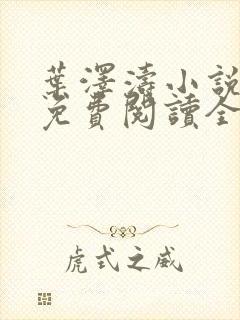 葉澤濤小說
免費閱讀全
虎式之威